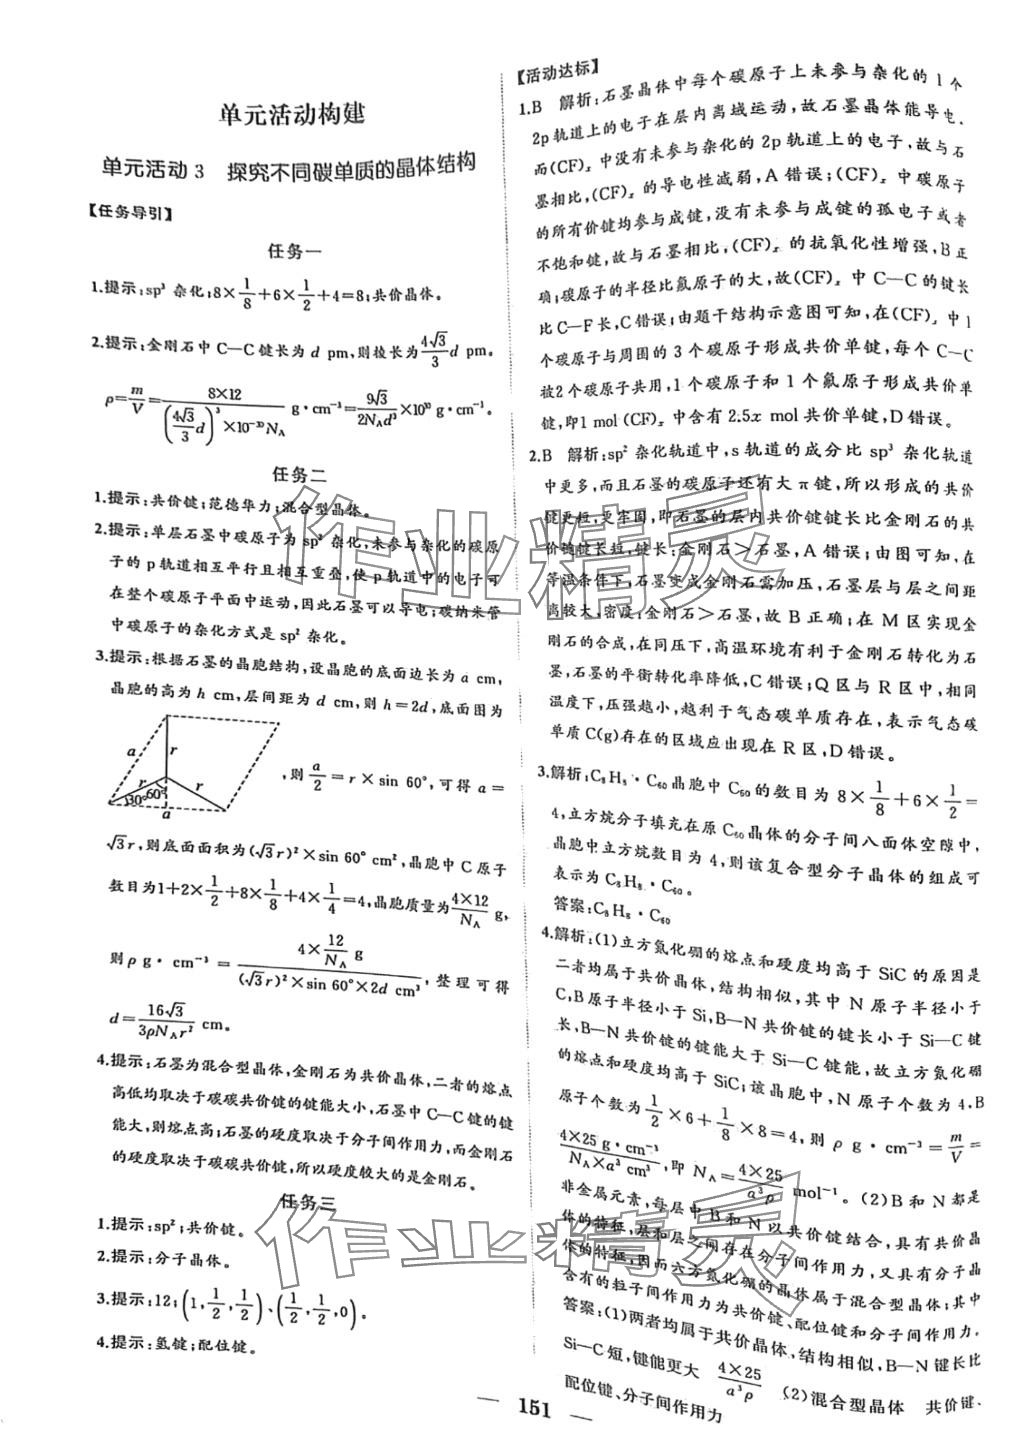 单元活动构建
单元活动3 探究不同碳单质的晶体结构
【任务导引】
任务一
1.提示:sp³杂化;8×1/8+6×1/2+4=8;共价晶体。
2.提示:金刚石中C—C键长为d pm,则棱长为4√3/3 d pm。
ρ=m/V=8×12/((4√3/3 d)³×10⁻³⁰N_A) g·cm⁻³=9√3/(2N_A d³)×10³⁰ g·cm⁻³。
任务二
1.提示:共价键;范德华力;混合型晶体。
2.提示:单层石墨中碳原子为sp²杂化,未参与杂化的碳原
子的p轨道相互平行且相互重叠,使p轨道中的电子可
在整个碳原子平面中运动,因此石墨可以导电;碳纳米管
中碳原子的杂化方式是sp²杂化。
3.提示:根据石墨的晶胞结构,设晶胞的底面边长为a cm,
晶胞的高为h cm,层间距为d cm,则h=2d,底面图为
a r r r 30° 60° a
,则a/2=r×sin 60°,可得a=
√3r,则底面面积为(√3r)²×sin 60° cm²,晶胞中C原子
数目为1+2×1/2+8×1/8+4×1/4=4,晶胞质量为4×12/N_A g,
则ρ g·cm⁻³=(4×12/N_A g)/((√3r)²×sin 60°×2d cm³),整理可得
d=16√3/(3ρN_A r²) cm。
4.提示:石墨为混合型晶体,金刚石为共价晶体,二者的熔点
高低均取决于碳碳共价键的键能大小,石墨中C—C键的键
能大,则熔点高;石墨的硬度取决于分子间作用力,而金刚石
的硬度取决于碳碳共价键,所以硬度较大的是金刚石。
任务三
1.提示:sp²;共价键。
2.提示:分子晶体。
3.提示:12;(1,1/2,1/2)、(1/2,1/2,0)。
4.提示:氢键;配位键。
【活动达标】
1.B 解析:石墨晶体中每个碳原子上未参与杂化的1个
2p轨道上的电子在层内离域运动,故石墨晶体能导电,
而(CF)ₓ中没有未参与杂化的2p轨道上的电子,故与石
墨相比,(CF)ₓ的导电性减弱,A错误;(CF)ₓ中碳原子
的所有价键均参与成键,没有未参与成键的孤电子或者
不饱和键,故与石墨相比,(CF)ₓ的抗氧化性增强,B正
确;碳原子的半径比氟原子的大,故(CF)ₓ中C—C的键长
比C—F长,C错误;由题干结构示意图可知,在(CF)ₓ中1
个碳原子与周围的3个碳原子形成共价单键,每个C—C
被2个碳原子共用,1个碳原子和1个氟原子形成共价单
键,即1 mol (CF)ₓ中含有2.5x mol共价单键,D错误。
2.B 解析:sp²杂化轨道中,s轨道的成分比sp³杂化轨道
中更多,而且石墨的碳原子还有大π键,所以形成的共价
键更短,更牢固,即石墨的层内共价键键长比金刚石的共
价键键长短,键长:金刚石>石墨,A错误;由图可知,在
等温条件下,石墨变成金刚石需加压,石墨层与层之间距
离较大,密度:金刚石>石墨,故B正确;在M区实现金
刚石的合成,在同压下,高温环境有利于金刚石转化为石
墨,石墨的平衡转化率降低,C错误;Q区与R区中,相同
温度下,压强越小,越利于气态碳单质存在,表示气态碳
单质C(g)存在的区域应出现在R区,D错误。
3.解析:C₈H₈·C₆₀晶胞中C₆₀的数目为8×1/8+6×1/2=
4,立方烷分子填充在原C₆₀晶体的分子间八面体空隙中,
晶胞中立方烷数目为4,则该复合型分子晶体的组成可
表示为C₈H₈·C₆₀。
答案:C₈H₈·C₆₀
4.解析:(1)立方氮化硼的熔点和硬度均高于SiC的原因是
二者均属于共价晶体,结构相似,其中N原子半径小于
C,B原子半径小于Si,B—N共价键的键长小于Si—C键
长,B—N共价键的键能大于Si—C键能,故立方氮化硼
的熔点和硬度均高于SiC;该晶胞中,N原子个数为4,B
原子个数为1/2×6+1/8×8=4,则ρ g·cm⁻³=m/V=
4×25 g·cm⁻³/(N_A×a³ cm³),即N_A=4×25/(a³ρ) mol⁻¹。(2)B和N都是
非金属元素,每层中B和N以共价键结合,具有共价晶
体的特征,层和层之间存在分子间作用力,又具有分子晶
体的特征,因而六方氮化硼的晶体属于混合型晶体;其中
含有的粒子间作用力为共价键、配位键和分子间作用力。
答案:(1)两者均属于共价晶体,结构相似,B—N键长比
Si—C短,键能更大 4×25/(a³ρ) (2)混合型晶体 共价键、
配位键、分子间作用力
— 151 —
作业精灵
作业精灵